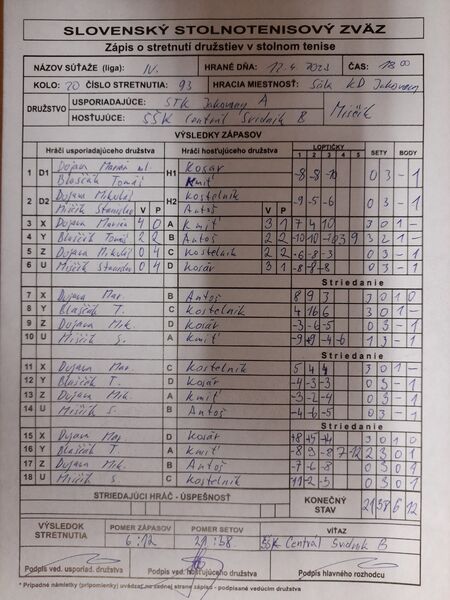 SLOVENSKÝ STOLNOTENISOVÝ ZVÄZ
Zápis o stretnutí družstiev v stolnom tenise
NÁZOV SÚŤAŽE (liga): IV. HRANÉ DŇA: ČAS: 18 00
KOLO: 20 ČÍSLO STRETNUTIA: 93 HRACIA MIESTNOSŤ: Sála KD Jakovany
DRUŽSTVO USPORIADAJÚCE: STK Jakovany A
HOSŤUJÚCE: SŠK Centrál Svidník B Mišėík
VÝSLEDKY ZÁPASOV
Hráči usporiadajúceho družstva Hráči hosťujúceho družstva LOPTIČKY 1 2 3 4 5 SETY BODY
1 D1 Dujava Marián ml. H1 Kosár -8 -8 -10 0 3 - 1
Blaščák Tomáš Kmiť
2 D2 Dujava Mikuláš H2 Kostelník -9 -5 -6 0 3 - 1
Miščík Stanislav V P Antoš V P
3 X Dujava Marián 4 0 A Kmiť 3 1 7 4 10 3 0 1 -
4 Y Blaščák Tomáš 2 2 B Antoš 2 2 -10 -10 3 9 3 2 1 -
5 Z Dujava Mikuláš 0 4 C Kostelník 2 2 -6 -8 -3 0 3 - 1
6 U Miščík Stanislav 0 4 D Kosár 3 1 -8 -8 -8 0 3 - 1
Striedanie
7 X Dujava Mar. B Antoš 8 9 3 3 0 1 0
8 Y Blaščák T. C Kostelník 4 16 6 3 0 1 -
9 Z Dujava Mik. D Kosár -3 -6 -5 0 3 - 1
10 U Miščík S. A Kmiť 1 3 - 1
Striedanie
11 X Dujava Mar. C Kostelník 5 4 4 3 0 1 -
12 Y Blaščák T. D Kosár -4 -3 -3 0 3 - 1
13 Z Dujava Mik. A Kmiť -3 -2 -4 0 3 - 1
14 U Miščík S. B Antoš -4 -6 -5 0 3 - 1
Striedanie
15 X Dujava Mar. D Kosár 3 0 1 0
16 Y Blaščák T. A Kmiť -8 9 -8 7 -12 2 3 0 1
17 Z Dujava Mik. B Antoš -7 -6 -8 0 3 0 1
18 U Miščík S. C Kostelník -11 -2 -3 0 3 - 1
STRIEDAJÚCI HRÁČ - ÚSPEŠNOSŤ KONEČNÝ STAV 21 38 6 12
VÝSLEDOK STRETNUTIA POMER ZÁPASOV POMER SETOV VÍŤAZ
6 : 12 21 : 38 SŠK Centrál Svidník B
Podpis ved. usporiad. družstva Podpis ved. hosťujúceho družstva Podpis hlavného rozhodcu
* Prípadné námietky (pripomienky) uvádzať na zadnej strane zápisu - podpísané vedúcim družstva